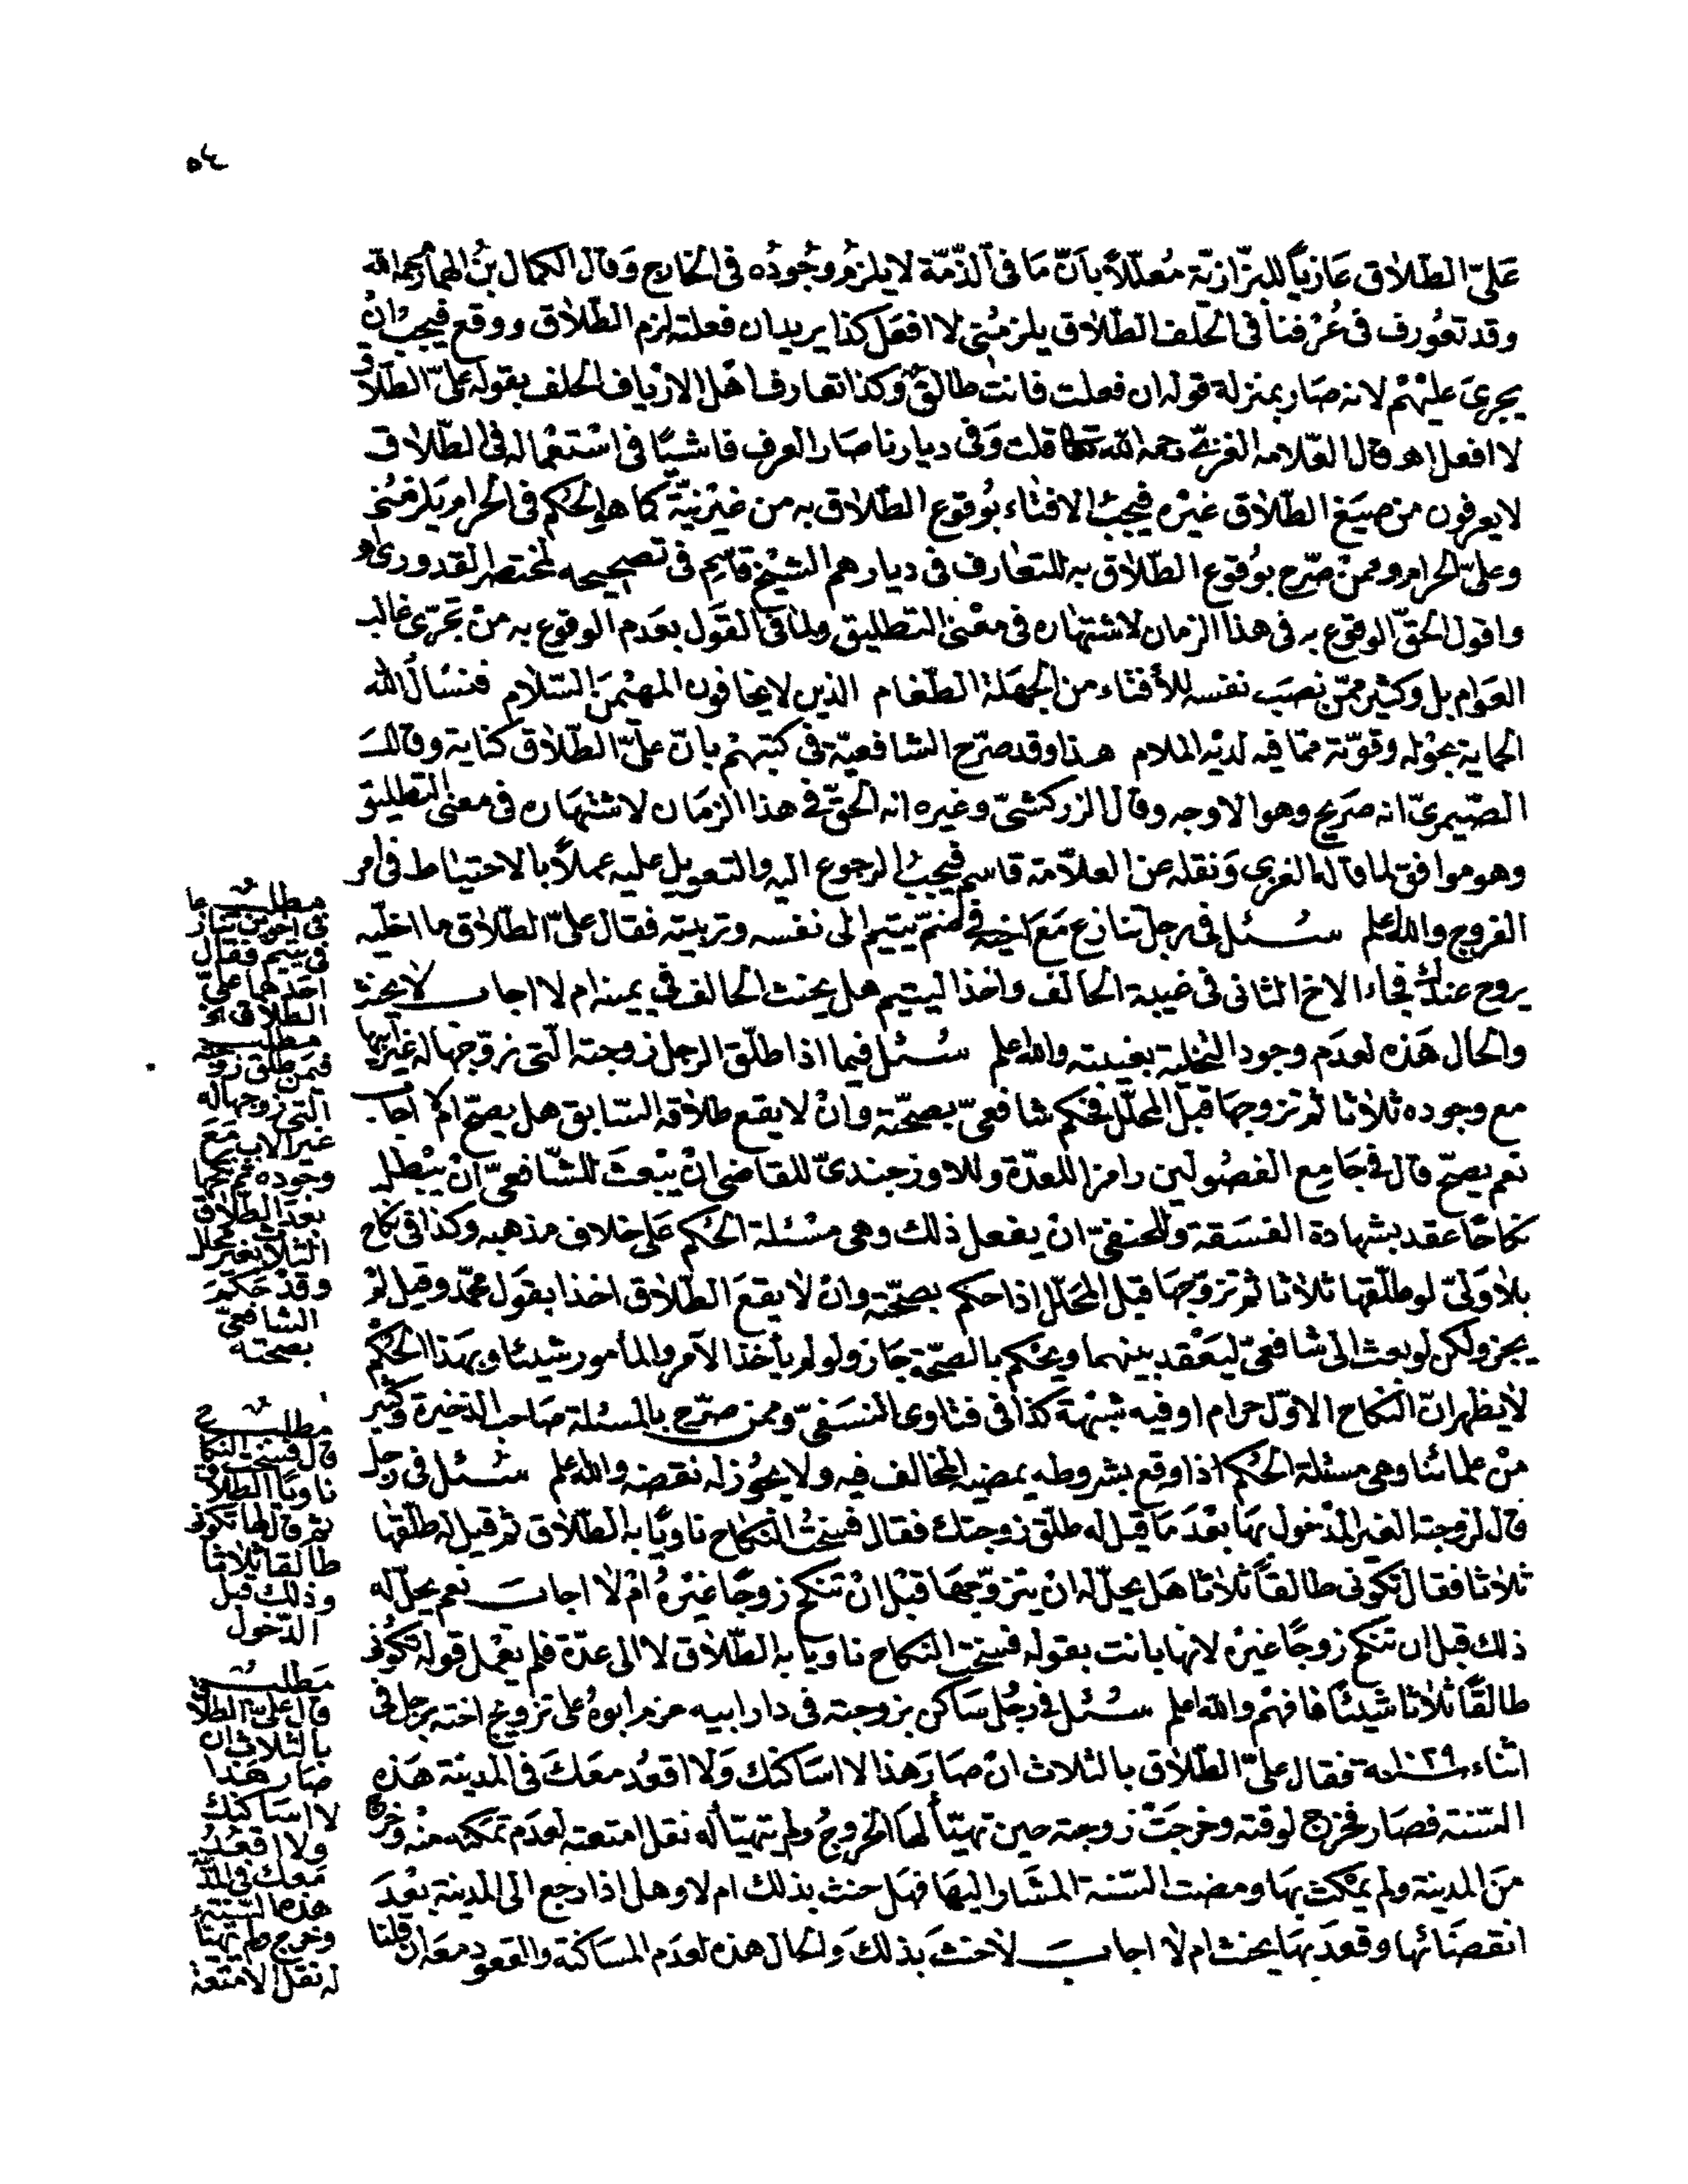 ٥٤
عَليّ الطّلاق عَازياً للبزّازيّة مُعلّلاً بأنّ مَا فى الذّمّة لا يلزم وجُودُه فى الخارج وَقال الكمال بنُ الهمام رحمه الله
وقد تعُورف فى عُرْفنا فى الحلف الطّلاق يلزمنى لا افعَل كذا يريد ان فعلته لزم الطّلاق ووقع فيجبُ انْ
يجرىَ عليْهمْ لانه صَار بمنزلة قوله ان فعلت فانت طالقٌ وَكذا تعارف اهْل الارْياف الحلف بقوله عليّ الطّلاق
لا افعل اهـ قال العّلامه الغزىّ رحمه الله تعالى قلت وَفى ديارنا صَار العرف فاشيًا فى اسْتعْماله فى الطّلاق
لا يعرفون من صيَغ الطّلاق غيْره فيجبُ الافتاء بوُقوع الطّلاق به من غيْر نيّة كما هو الحُكم فى الحرام يَلزمُنى
وعليّ الحرام وممنْ صرّح بوُقوع الطّلاق به للتعَارف فى ديارهم الشيْخ قاسِم فى تصحيحه لمختصر القدورىّ
واقول الحَقّ الوقوع به فى هذا الزمان لاشتهاره فى معْنى التطليق ولما فى القوْل بعَدم الوقوع به منْ تجرّى غالب
العَوام بل وَكثير ممّن نصَب نفسه للأفتاء من الجهَلة الطّغام الذين لا يخافون المهيْمنَ السّلام فنسْألُ الله
الحماية بحوْله وقوّته ممّا فيه لديْه الملام هذا وقد صرّح الشافعيّة فى كتبهمْ بانّ عليّ الطّلاق كناية وقال
الصّيمرىّ انه صَريح وهو الاوجه وقال الزركشىّ وغيره انه الحَقّ فى هذا الزمَان لاشتهاره فى معنى التطليق
وهو موافق لما قاله الغزى وَنقله عن العلاّمة قاسم فيجبُ الرجوع اليه والتعويل عليه عملاً بالاحتياط فى امر
الفروج والله اعلم سُئل فى رجل تنازع مَعَ اخيه فى ضمّ يتيم الى نفسه وتربيته فقال عليّ الطّلاق ما اخليه
يروح عندك فجاء الاخ الثانى فى غيبة الحالف واخذ اليتيم هل يحنث الحالف فى يمينه ام لا اجاب لا يحنث
والحال هَذه لعدَم وجود التخلية بغيبته والله اعلم سُئل فيما اذا طلّق الرجل زوجته الّتى زوّجها له غيْر ابيها
مع وجوده ثلاثا ثم تزوجها قبل المحلّل فحكم شافعىّ بصحّته وانْ لا يقع طلاقه السّابق هل يصحّ ام لا اجاب
نعم يصحّ قال فى جَامِع الفصُولين رامزا للعدّة وللاوزجندىّ للقاضى انْ يبْعثَ للشّافعىّ انْ يبْطل
نكاحًا عقد بشهادة الفسَقة وللحنفىّ انْ يفعل ذلك وهى مسْئلة الحُكم عَلى خلاف مذهبه وكذا فى نكاح
بلا وَلىّ لو طلّقها ثلاثا ثم تزوّجهَا قبل المحَلّل اذا حكم بصحّته وانْ لا يقعَ الطّلاق اخذا بقَول محمّد وقيل لمْ
يجز ولكن لو بعث الى شافعىّ ليَعْقد بينهما ويحْكم بالصحّة جَاز ولو لم يأخذ الآمر والمأمور شيئا وبهَذا الحُكم
لا يظهر انّ النكاح الاوّل حرام او فيه شبْهة كذا فى فتاوى النسَفىّ وممن صرّح بالمسئلة صَاحب الذخيرة وكثير
منْ علمائنا وهى مسئلة الحُكم اذا وقع بشروطه يمضيه المخالف فيه ولا يجُوز له نقضه والله اعلم سُئل فى رجل
قال لزوجته الغير المدْخول بهَا بعْدَ مَا قيل له طلّق زوجتك فقال فسخْتُ النكاح ناويًا به الطّلاق ثم قيل له طلّقها
ثلاثا فقال تكونى طالقاً ثلاثا هَل يحلّ له انْ يتزوّجهَا قبْل انْ تنكح زوجًا غيْرهُ امْ لا اجاب نعم يحلّ له
ذلك قبل ان تنكح زوجًا غيْره لانها بانت بقوله فسخت النكاح ناويا به الطّلاق لا الى عدّة فلم يعْمل قوله تكونى
طالقاً ثلاثا شيئًا فافهمْ والله اعلم سُئل فى رجُل سَاكن بزوجته فى دار ابيه عزم ابوهُ على تزويج اخته برجل فى
اثناء سنة ١٠٢٩ فقال عليّ الطّلاق بالثلاث انْ صَارَ هَذا لا اسَاكنك وَلا اقعُد معَكَ فى المدينة هَذه
السّنة فصَار فخرج لوقته وخرجَتْ زوجته حين تهيّأ لهَا الخروجُ ولم يتهيّأ له نقل امتعته لعدَم تمكنه منْه وخرج
منَ المدينة ولم يمْكث بهَا ومضت السّنة المشَار اليهَا فهَل حنث بذلك ام لا وهل اذا رجع الى المدينة بعْدَ
انقضَائها وقعدَ بهَا يحنث ام لا اجابَ لا حنثَ بذلكَ والحال هذه لعدَم المسَاكنة والقعود معَه ان قلنا
مطلب
فى اخوين تنازعا
فى يتيم فقال
احدهما عليّ
الطلاق الخ
مطلب
فيمن طلق زوجته
التى زوجها له
غير الاب مَعَ
وجوده ثم نكحها
بعد الطلاق
الثلاث بغير محلل
وقدْ حكمَ
الشافعىّ
بصحته
مطلب
قال فسخت النكاح
ناويًا الطلاق
ثم قال لها تكونى
طالقا ثلاثا
وذلك قبل
الدّخول
مَطلب
قال عليّ الطلاق
بالثلاث ان
صَار هَذا
لا اسَاكنك
ولا اقعُدُ
مَعك فى المدينة
هذه السّنة
وخرج ولم يتهيّأ
له نقل الامتعة